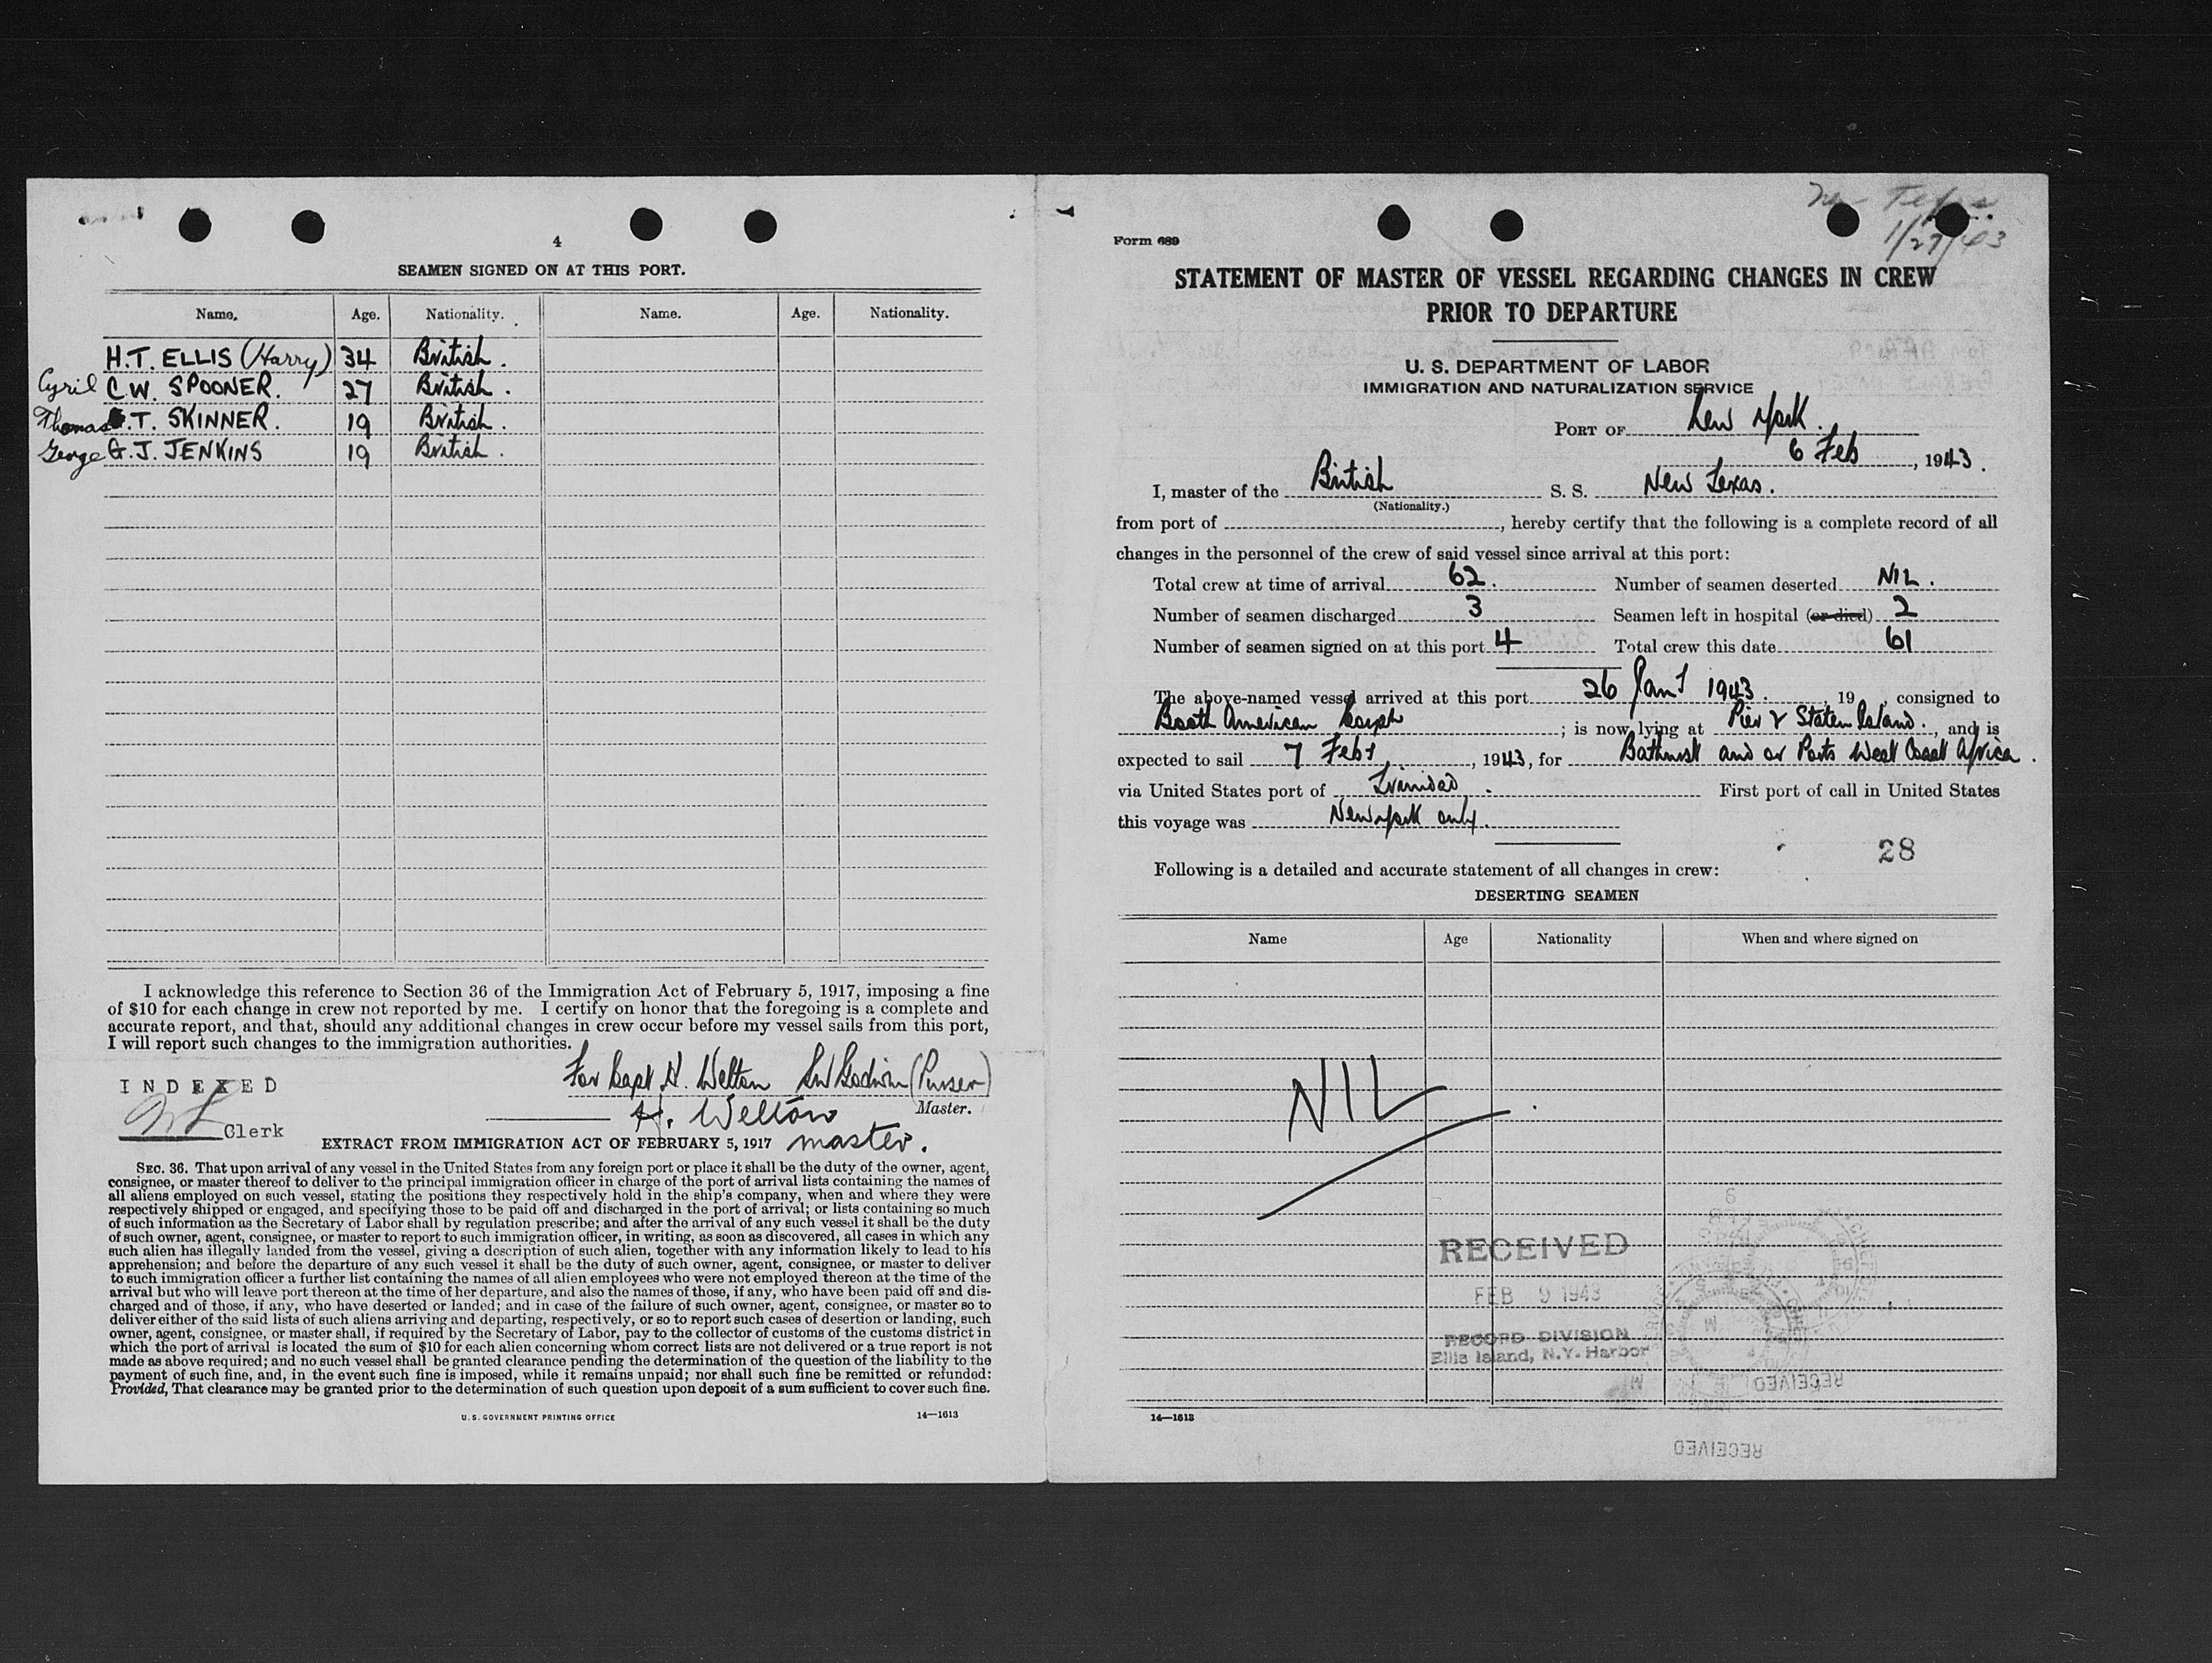 4
SEAMEN SIGNED ON AT THIS PORT.
Name. Age. Nationality. Name. Age. Nationality.
H.T. ELLIS (Harry) 34 British.
Cyril C.W. SPOONER. 27 British.
Thomas T. SKINNER. 19 British.
George G.J. JENKINS 19 British.
I acknowledge this reference to Section 36 of the Immigration Act of February 5, 1917, imposing a fine
of $10 for each change in crew not reported by me. I certify on honor that the foregoing is a complete and
accurate report, and that, should any additional changes in crew occur before my vessel sails from this port,
I will report such changes to the immigration authorities.
For Capt H. Welton Godwin (Purser)
INDEXED
H. Welton Master.
Clerk
EXTRACT FROM IMMIGRATION ACT OF FEBRUARY 5, 1917 master.
SEC. 36. That upon arrival of any vessel in the United States from any foreign port or place it shall be the duty of the owner, agent,
consignee, or master thereof to deliver to the principal immigration officer in charge of the port of arrival lists containing the names of
all aliens employed on such vessel, stating the positions they respectively hold in the ship's company, when and where they were
respectively shipped or engaged, and specifying those to be paid off and discharged in the port of arrival; or lists containing so much
of such information as the Secretary of Labor shall by regulation prescribe; and after the arrival of any such vessel it shall be the duty
of such owner, agent, consignee, or master to report to such immigration officer, in writing, as soon as discovered, all cases in which any
such alien has illegally landed from the vessel, giving a description of such alien, together with any information likely to lead to his
apprehension; and before the departure of any such vessel it shall be the duty of such owner, agent, consignee, or master to deliver
to such immigration officer a further list containing the names of all alien employees who were not employed thereon at the time of the
arrival but who will leave port thereon at the time of her departure, and also the names of those, if any, who have been paid off and dis-
charged and of those, if any, who have deserted or landed; and in case of the failure of such owner, agent, consignee, or master so to
deliver either of the said lists of such aliens arriving and departing, respectively, or so to report such cases of desertion or landing, such
owner, agent, consignee, or master shall, if required by the Secretary of Labor, pay to the collector of customs of the customs district in
which the port of arrival is located the sum of $10 for each alien concerning whom correct lists are not delivered or a true report is not
made as above required; and no such vessel shall be granted clearance pending the determination of the question of the liability to the
payment of such fine, and, in the event such fine is imposed, while it remains unpaid; nor shall such fine be remitted or refunded:
Provided, That clearance may be granted prior to the determination of such question upon deposit of a sum sufficient to cover such fine.
U.S. GOVERNMENT PRINTING OFFICE 14—1613
1/27/43
Form 689
STATEMENT OF MASTER OF VESSEL REGARDING CHANGES IN CREW
PRIOR TO DEPARTURE
U. S. DEPARTMENT OF LABOR
IMMIGRATION AND NATURALIZATION SERVICE
PORT OF New York.
6 Feb, 1943.
I, master of the British S. S. New Texas.
(Nationality.)
from port of, hereby certify that the following is a complete record of all
changes in the personnel of the crew of said vessel since arrival at this port:
Total crew at time of arrival 62. Number of seamen deserted NIL.
Number of seamen discharged 3 Seamen left in hospital (or died) 2
Number of seamen signed on at this port 4 Total crew this date 61
The above-named vessel arrived at this port 26 Jany 1943., 19, consigned to
Booth American ; is now lying at Pier Y Staten Island., and is
expected to sail 7 Feby, 1943, for Bathurst and or Ports West Coast Africa.
via United States port of Trinidad. First port of call in United States
this voyage was New York only.
28
Following is a detailed and accurate statement of all changes in crew:
DESERTING SEAMEN
Name Age Nationality When and where signed on
NIL
RECEIVED
FEB 9 1943
RECORD DIVISION
Ellis Island, N.Y. Harbor
RECEIVED
14—1613
RECEIVED